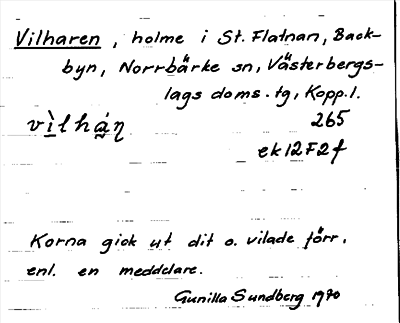 Vilharen, holme i St. Flatnan, Back-
byn, Norrbärke sn, Västerbergs-
lags doms. tg, Kopp. l.
vìlhán 265
ek12F2f
Korna gick ut dit o. vilade förr,
enl. en meddelare.
Gunilla Sundberg 1970